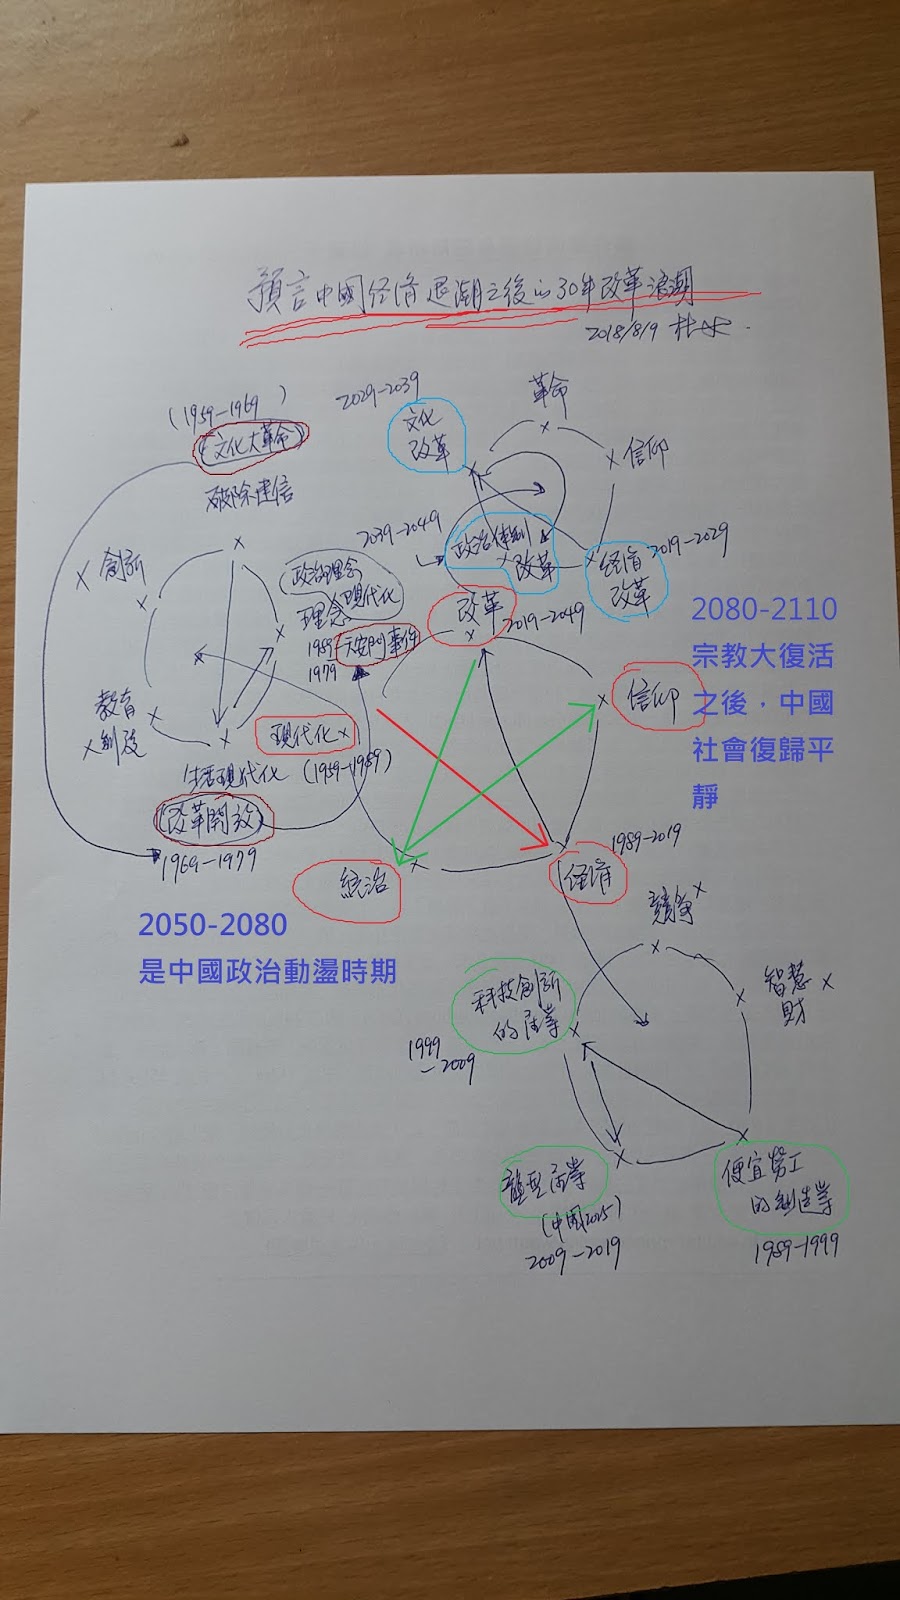 預言中國經濟退潮之後的30年改革浪潮
2018/8/9 杜
(1959-1969)
文化大革命
破除迷信
2029-2039
文化
改革
革命
信仰
2039-2049
政治体制
改革
經濟
改革
2019-2029
創新
政治理念
現代化
理念
1989
1979
天安門事件
改革
2019-2049
2080-2110
宗教大復活
之後，中國
社會復歸平
靜
信仰
教育
制度
現代化
生活現代化 (1959-1989)
改革開放
1969-1979
統治
經濟
1989-2019
2050-2080
是中國政治動盪時期
競爭
智慧
財
科技創新
的產業
1999
-2009
產業
(中國2025)
2009-2019
便宜勞工
的製造業
1989-1999